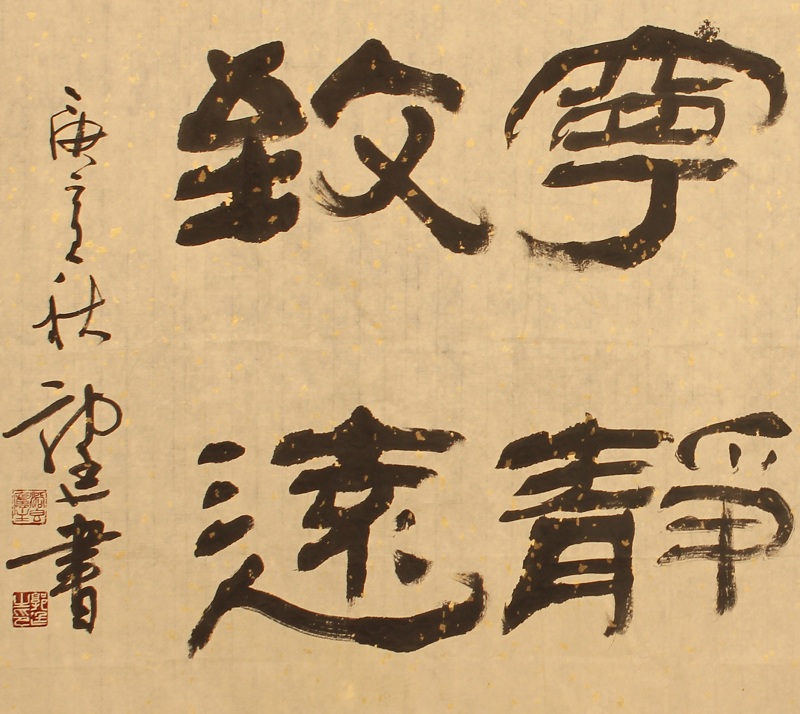 寧靜
致遠
庚寅秋
書